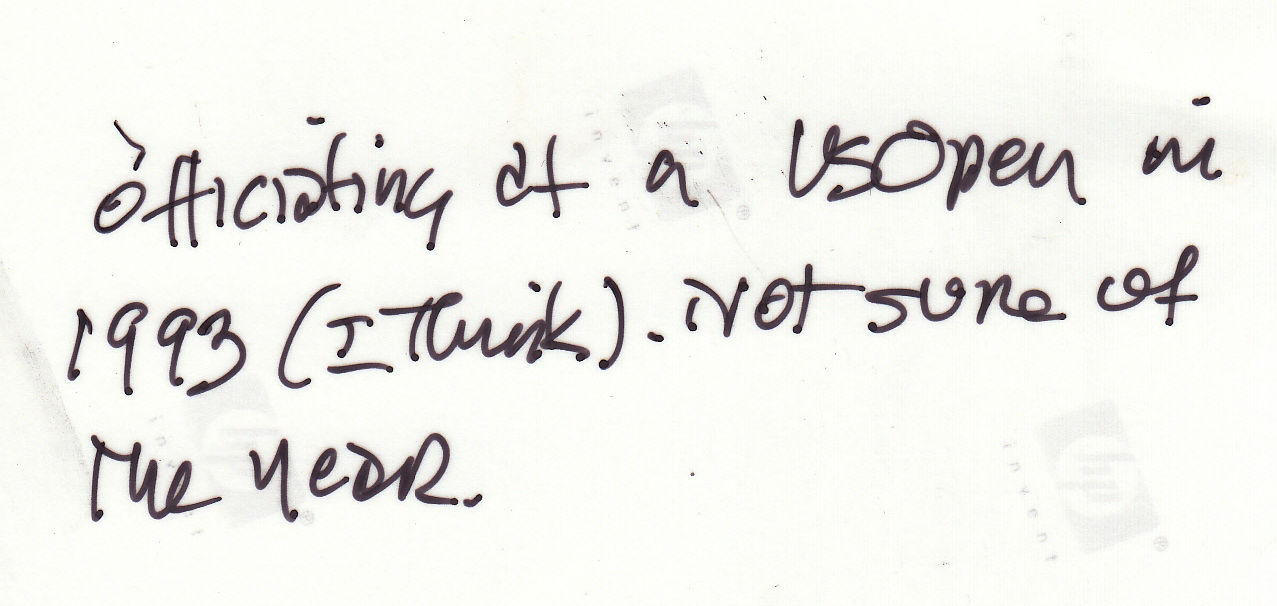 Officiating at a US Open in
1993 (I Think). Not sure of
the year.